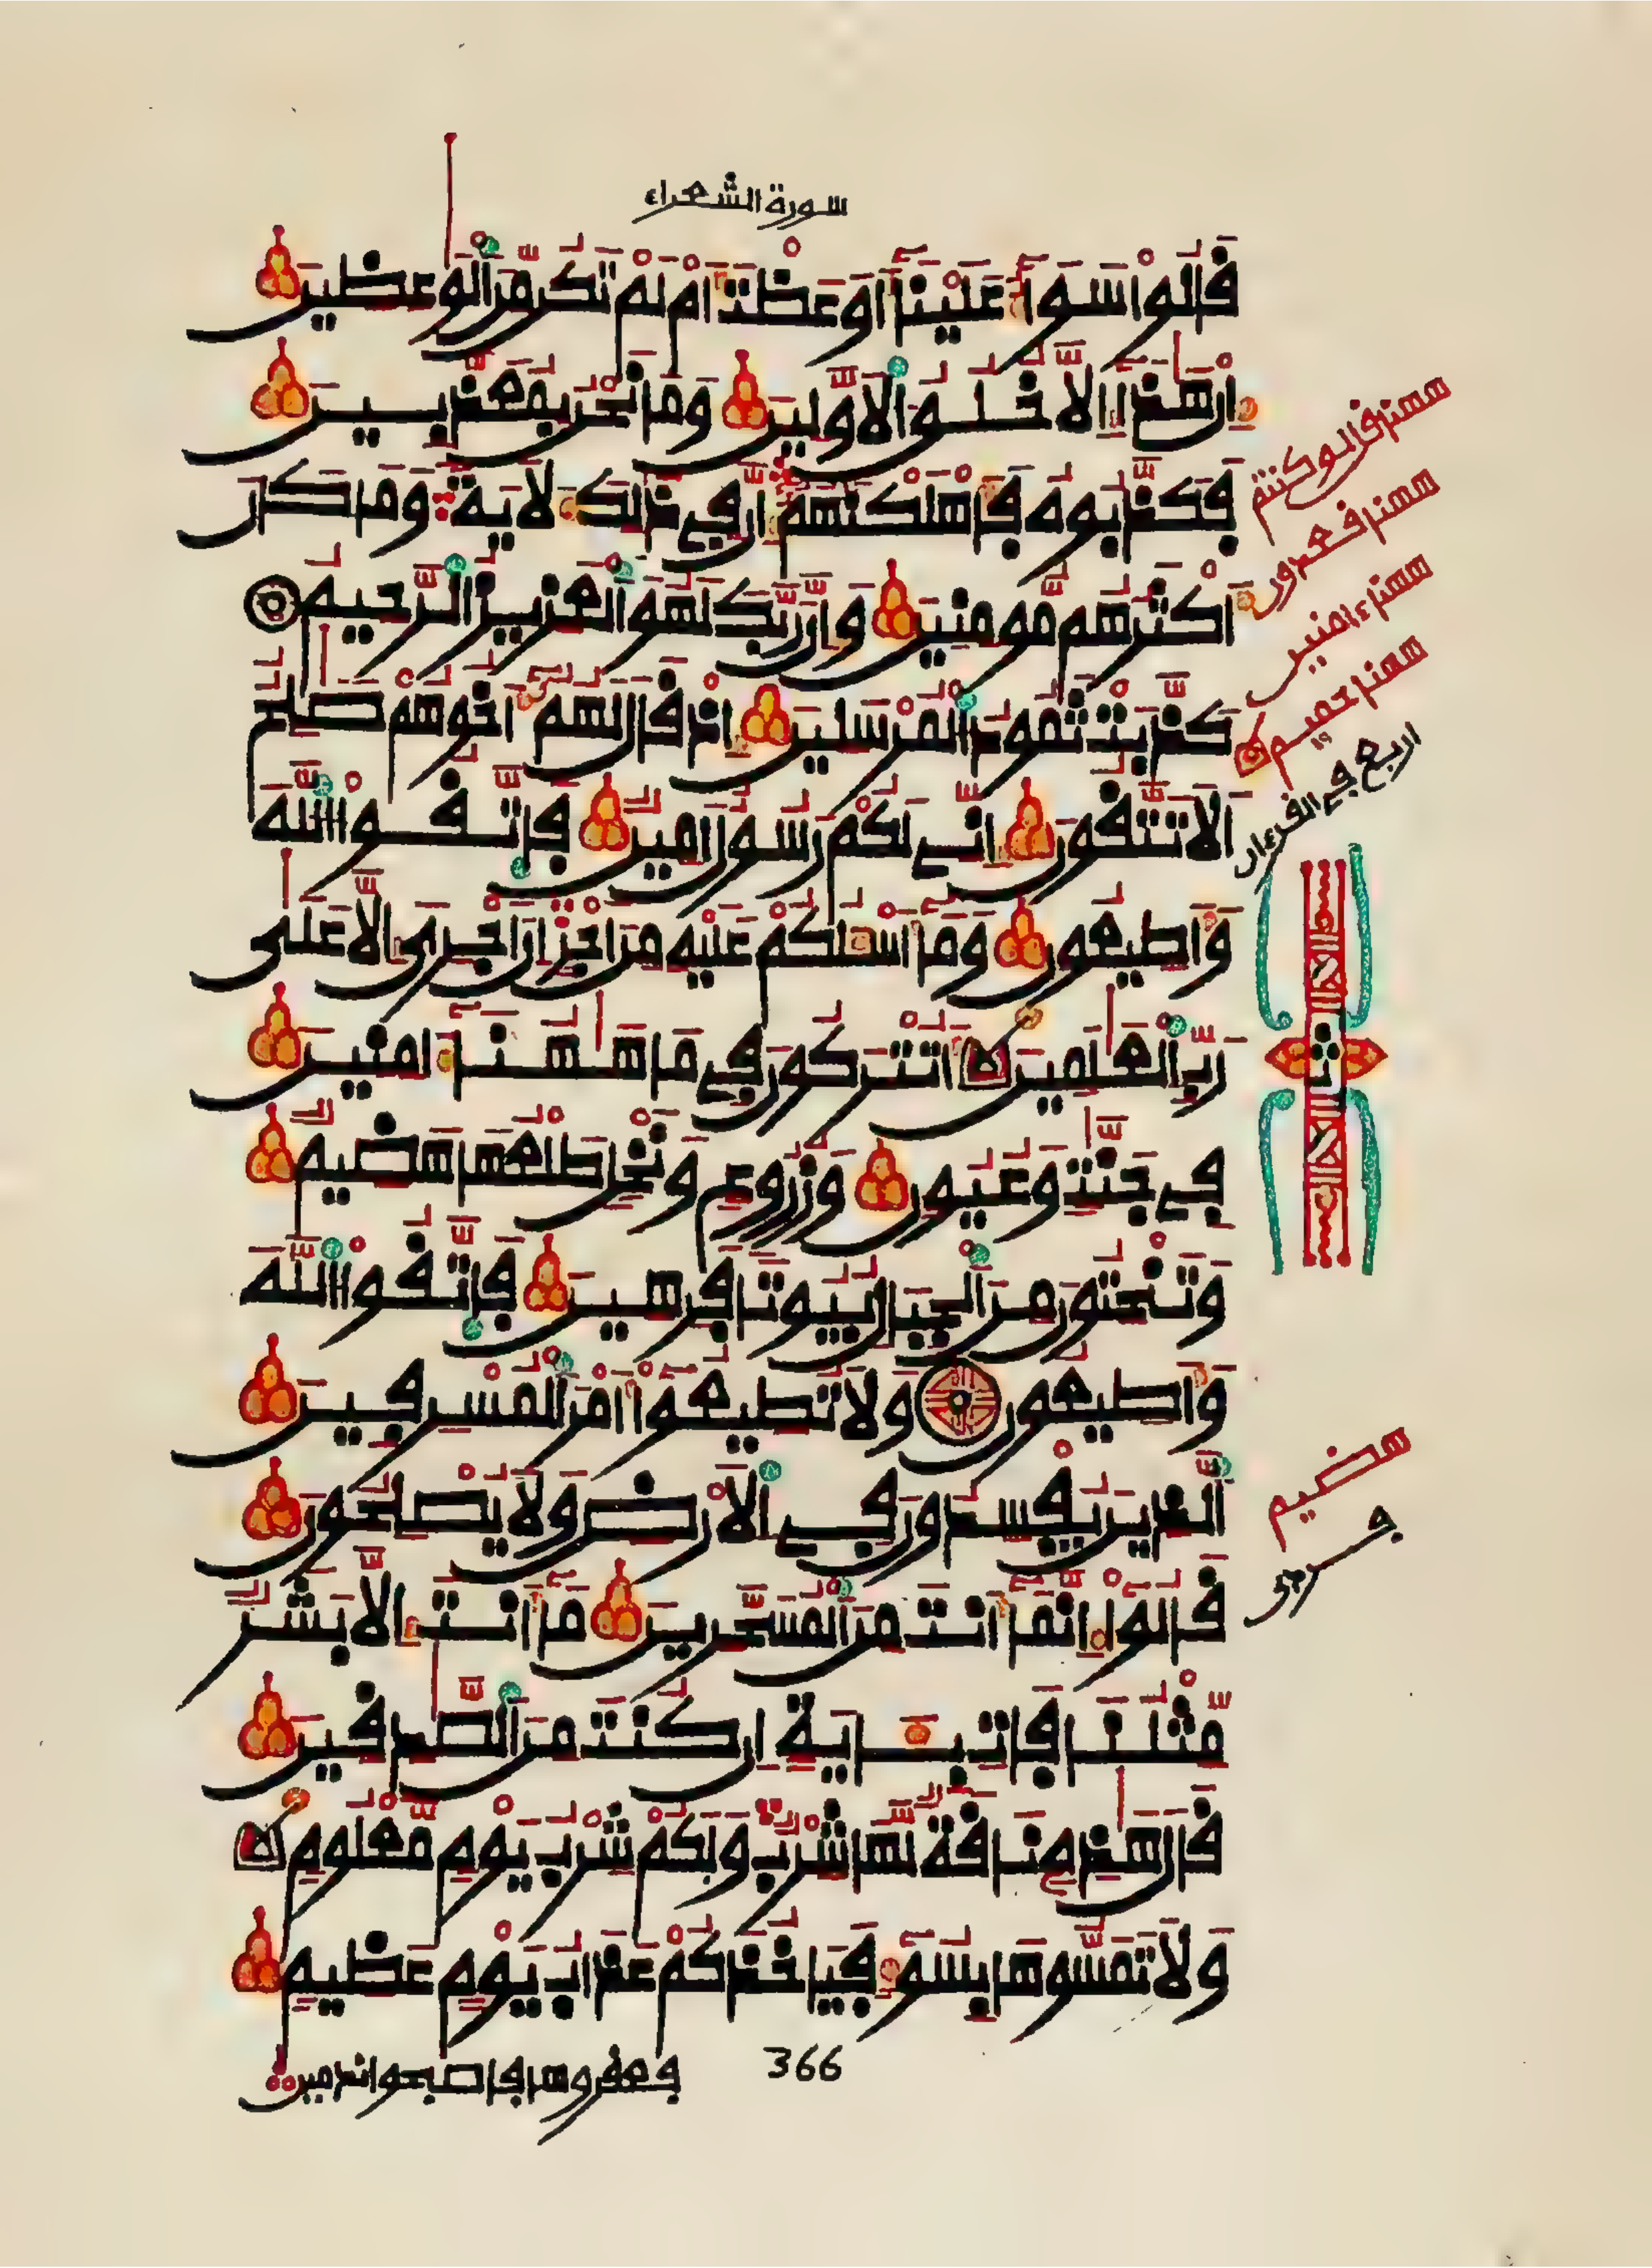 سورة الشعراء
قَالُوا سَوَآءٌ عَلَيْنَآ أَوَعَظْتَ أَمْ لَمْ تَكُن مِّنَ ٱلْوَٰعِظِينَ
إِنْ هَٰذَآ إِلَّا خُلُقُ ٱلَاوَّلِينَ وَمَا نَحْنُ بِمُعَذَّبِينَ
فَكَذَّبُوهُ فَأَهْلَكْنَٰهُمُۥٓ إِنَّ فِي ذَٰلِكَ لَأٓيَةً وَمَا كَانَ
أَكْثَرُهُم مُّومِنِينَ وَإِنَّ رَبَّكَ لَهُوَ ٱلْعَزِيزُ ٱلرَّحِيمُ
كَذَّبَتْ ثَمُودُ ٱلْمُرْسَلِينَ إِذْ قَالَ لَهُمُۥٓ أَخُوهُمْ صَٰلِحٌ
أَلَا تَتَّقُونَ إِنِّي لَكُمْ رَسُولٌ أَمِينٌ فَاتَّقُوا ٱللَّهَ
وَأَطِيعُونِ وَمَآ أَسْـَٔلُكُمْ عَلَيْهِ مِنَ اَجْرٍ اِنَ اَجْرِيَ إِلَّا عَلَىٰ
رَبِّ ٱلْعَٰلَمِينَ أَتُتْرَكُونَ فِي مَا هَٰهُنَآ ءَامِنِينَ
فِي جَنَّٰتٍ وَعُيُونٍ وَزُرُوعٍ وَنَخْلٍ طَلْعُهَا هَضِيمٌ
وَتَنْحِتُونَ مِنَ ٱلْجِبَالِ بُيُوتاً فَرِهِينَ فَاتَّقُوا ٱللَّهَ
وَأَطِيعُونِ وَلَا تُطِيعُوٓا أَمْرَ ٱلْمُسْرِفِينَ
ٱلَّذِينَ يُفْسِدُونَ فِي ٱلَارْضِ وَلَا يُصْلِحُونَ
قَالُوٓا إِنَّمَآ أَنتَ مِنَ ٱلْمُسَحَّرِينَ مَآ أَنتَ إِلَّا بَشَرٌ
مِّثْلُنَا فَاتِ بِـَٔايَةٍ اِن كُنتَ مِنَ ٱلصَّٰدِقِينَ
قَالَ هَٰذِهِۦ نَاقَةٌ لَّهَا شِرْبٌ وَلَكُمْ شِرْبُ يَوْمٍ مَّعْلُومٍ
وَلَا تَمَسُّوهَا بِسُوٓءٍ فَيَاخُذَكُمْ عَذَابُ يَوْمٍ عَظِيمٍ
فعقروها فأصبحوا ندمين
366
ههنا قالو كنتم
ههنا قعدون
ههنا ءامنين
ههنا حميم
اربع في القرءان
ثمن
هضيم